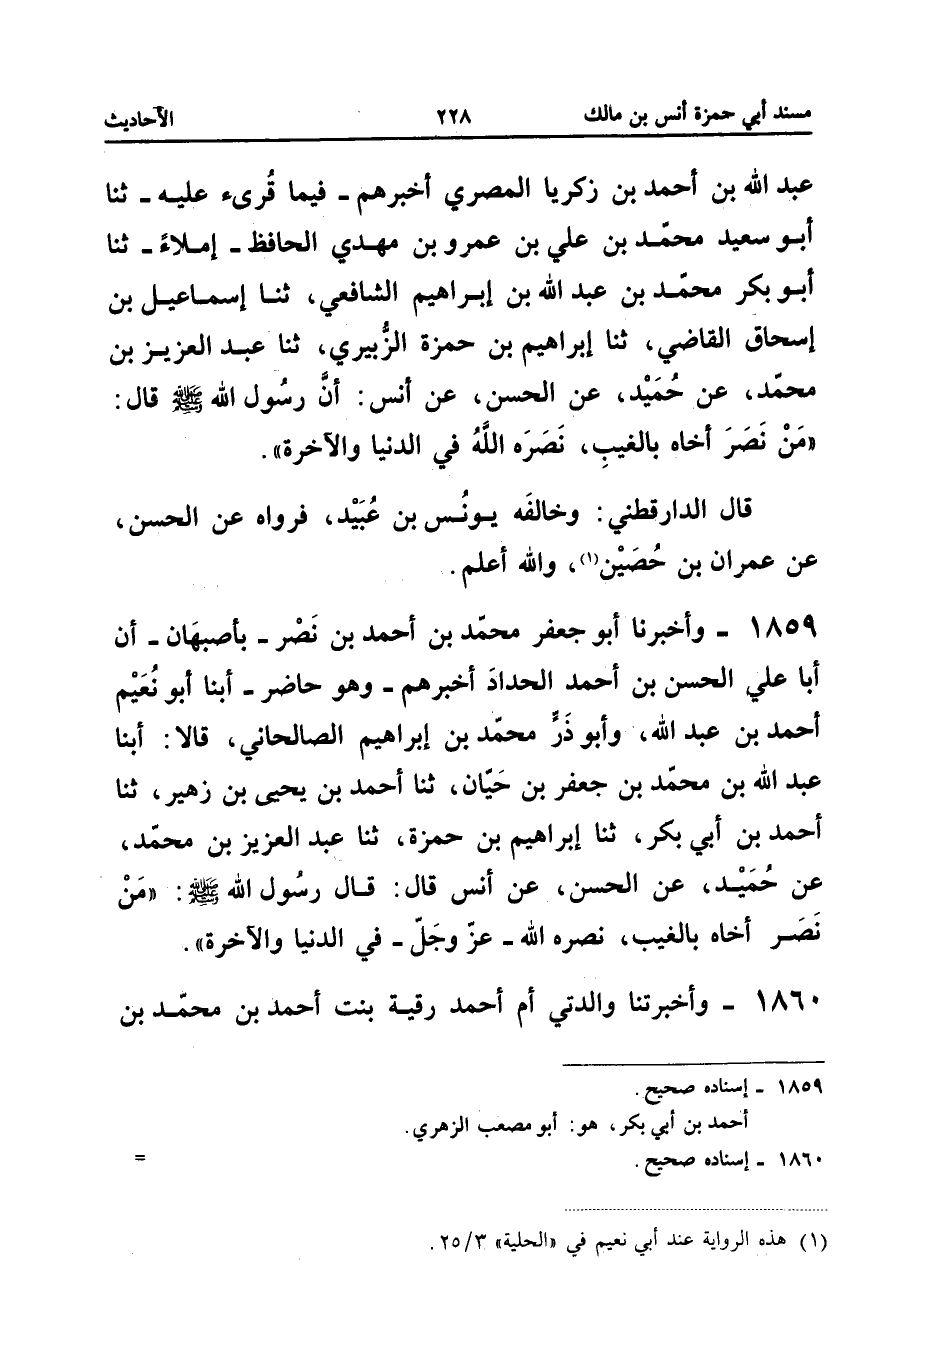 مسند أبي حمزة أنس بن مالك ٢٢٨ الآحاديث
عبد الله بن أحمد بن زكريا المصري أخبرهم ـ فيما قُرىء عليه ـ ثنا
أبو سعيد محمّد بن علي بن عمرو بن مهدي الحافظ ـ إملاءً ـ ثنا
أبو بكر محمّد بن عبد الله بن إبراهيم الشافعي، ثنا إسماعيل بن
إسحاق القاضي، ثنا إبراهيم بن حمزة الزُّبيري، ثنا عبد العزيز بن
محمّد، عن حُمَيْد، عن الحسن، عن أنس: أنَّ رسُول الله ﷺ قال:
«مَنْ نَصَرَ أخاه بالغيبِ، نَصَرَه اللَّهُ في الدنيا والآخرة».
قال الدارقطني: وخالفَه يونُس بن عُبَيْد، فرواه عن الحسن،
عن عمران بن حُصَيْن(١)، والله أعلم.
١٨٥٩ ـ وأخبرنا أبو جعفر محمّد بن أحمد بن نَصْر ـ بأصبهَان ـ أن
أبا علي الحسن بن أحمد الحدادَ أخبرهم ـ وهو حاضر ـ أبنا أبو نُعَيْم
أحمد بن عبد الله، وأبو ذَرٍّ محمّد بن إبراهيم الصالحاني، قالا: أبنا
عبد الله بن محمّد بن جعفر بن حَيّان، ثنا أحمد بن يحيى بن زهير، ثنا
أحمد بن أبي بكر، ثنا إبراهيم بن حمزة، ثنا عبد العزيز بن محمّد،
عن حُمَيْد، عن الحسن، عن أنس قال: قال رسُول الله ﷺ: «مَنْ
نَصَر أخاه بالغيب، نصره الله ـ عزّ وجَلّ ـ في الدنيا والآخرة».
١٨٦٠ ـ وأخبرتنا والدتي أم أحمد رقية بنت أحمد بن محمّد بن
١٨٥٩ ـ إسناده صحيح.
أحمد بن أبي بكر، هو: أبو مصعب الزهري.
١٨٦٠ ـ إسناده صحيح. =
(١) هذه الرواية عند أبي نعيم في «الحلية» ٢٥/٣.